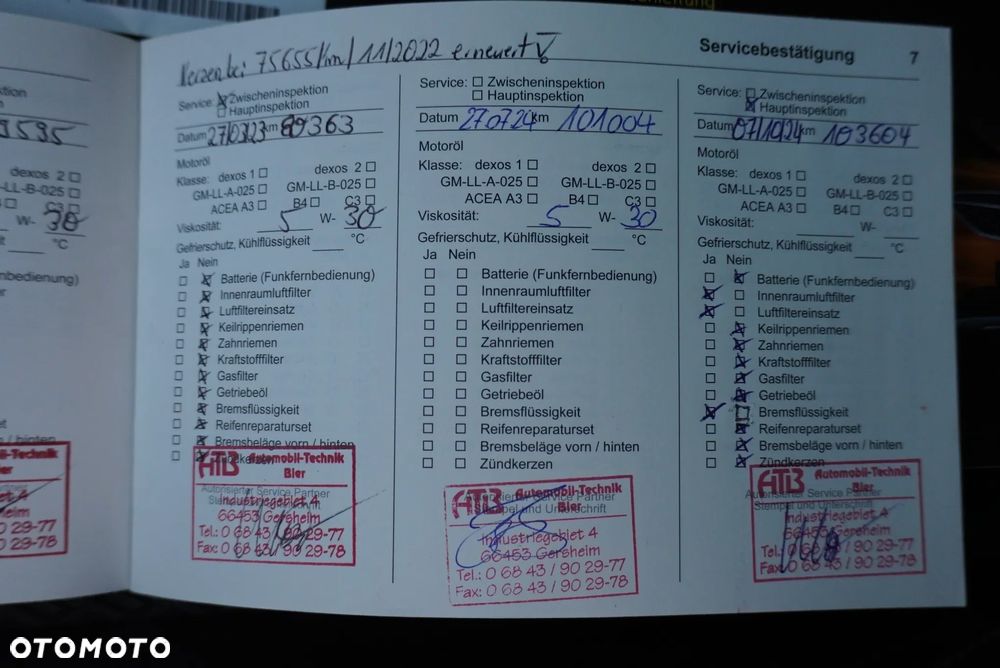 Servicebestätigung 7
Kerzen bei 75655km/11/2022 erneuert
9595
2
-LL-B-025
C3
W- 30
°C
nbedienung)
/ hinten
Service: Zwischeninspektion
Hauptinspektion
Datum 27/03/23 km 89363
Motoröl
Klasse: dexos 1 dexos 2
GM-LL-A-025 GM-LL-B-025
ACEA A3 B4 C3
Viskosität: 5 W- 30
Gefrierschutz, Kühlflüssigkeit °C
Ja Nein
Batterie (Funkfernbedienung)
Innenraumluftfilter
Luftfiltereinsatz
Keilrippenriemen
Zahnriemen
Kraftstofffilter
Gasfilter
Getriebeöl
Bremsflüssigkeit
Reifenreparaturset
Bremsbeläge vorn / hinten
Zündkerzen
ATB Automobil-Technik
Bier
Autorisierter Service Partner
Industriegebiet 4
66453 Gersheim
Tel.: 0 68 43 / 90 29-77
Fax: 0 68 43 / 90 29-78
Service: Zwischeninspektion
Hauptinspektion
Datum 270724 km 101004
Motoröl
Klasse: dexos 1 dexos 2
GM-LL-A-025 GM-LL-B-025
ACEA A3 B4 C3
Viskosität: 5 W- 30
Gefrierschutz, Kühlflüssigkeit °C
Ja Nein
Batterie (Funkfernbedienung)
Innenraumluftfilter
Luftfiltereinsatz
Keilrippenriemen
Zahnriemen
Kraftstofffilter
Gasfilter
Getriebeöl
Bremsflüssigkeit
Reifenreparaturset
Bremsbeläge vorn / hinten
Zündkerzen
ATB Automobil-Technik
Bier
Autorisierter Service Partner
Stempel und Unterschrift
Industriegebiet 4
66453 Gersheim
Tel.: 0 68 43 / 90 29-77
Fax: 0 68 43 / 90 29-78
Service: Zwischeninspektion
Hauptinspektion
Datum 07/10/24 km 103604
Motoröl
Klasse: dexos 1 dexos 2
GM-LL-A-025 GM-LL-B-025
ACEA A3 B4 C3
Viskosität: W-
Gefrierschutz, Kühlflüssigkeit °C
Ja Nein
Batterie (Funkfernbedienung)
Innenraumluftfilter
Luftfiltereinsatz
Keilrippenriemen
Zahnriemen
Kraftstofffilter
Gasfilter
Getriebeöl
Bremsflüssigkeit
Reifenreparaturset
Bremsbeläge vorn / hinten
Zündkerzen
ATB Automobil-Technik
Bier
Autorisierter Service Partner
Stempel und Unterschrift
Industriegebiet 4
66453 Gersheim
Tel.: 0 68 43 / 90 29-77
Fax: 0 68 43 / 90 29-78
il-Technik
0 29-77
0 29-78
OTOMOTO